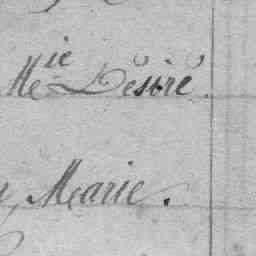 Mie Désiré.
Marie.